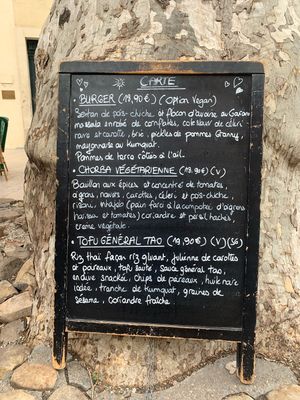 CARTE
• BURGER (19,90€) (Option Vegan)
de pois-chiche et flocon d'avoine au Garam
massala enrobé de cornflakes, coleslaw de céleri
rave et carotte, brie, pickles de pommes Granny,
mayonnaise au kumquat.
Pommes de terre rôties à l'ail.
• CHORBA VÉGÉTARIENNE (19,90€) (V)
Bouillon aux épices et concentré de tomates,
oignons, navets, carottes, céleri, et pois-chiche,
(pain farci à la compotée d'oignons
harissa et tomates) coriandre et persil hachés,
crème végétale.
• TOFU GÉNÉRAL TAO (19,90€) (V) (SG)
Riz thaï façon riz gluant, julienne de carottes
et poireaux, tofu sauté, sauce général tao,
endive snackée, chips de poireaux, huile noire
iodée, tranche de kumquat, graines de
sésame, coriandre fraîche.